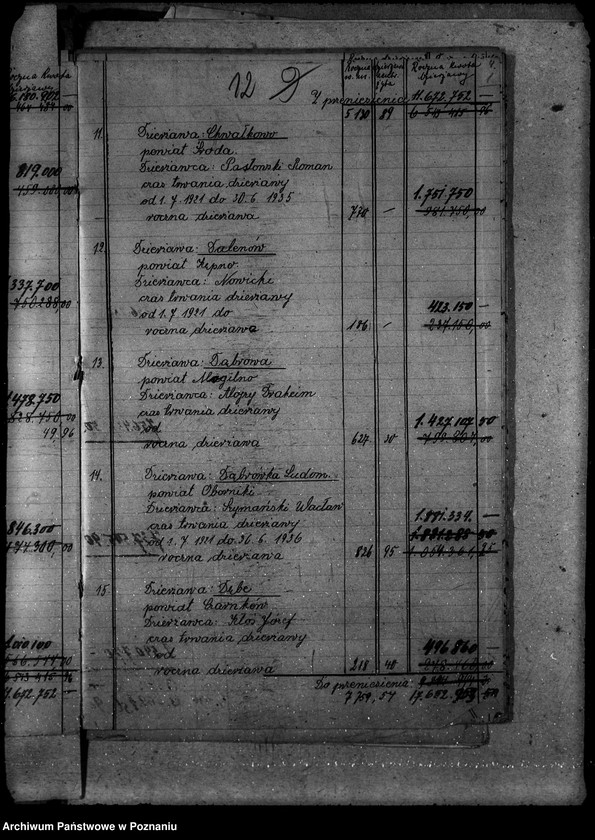 12 D
Roczna kwota
Z przeniesienia 11.672.752 —
5 130 89
11. Dzierżawa: Chwałkowo
powiat Środa.
Dzierżawca: Pasłowski Roman
czas trwania dzierżawy
od 1.7 1921 do 30.6 1935
1.751.750
roczna dzierżawa 770 — 981.750,00
12. Dzierżawa: Dalenów
powiat Kępno.
Dzierżawca: Nowicki
czas trwania dzierżawy
od 1.7 1921 do
423.150 —
roczna dzierżawa 186 — 237.150,00
13. Dzierżawa: Dąbrowa
powiat Mogilno
Dzierżawca: Alojzy Draheim
czas trwania dzierżawy
od
1.427.107 50
roczna dzierżawa 627 30
14. Dzierżawa: Dąbrówka Ludom.
powiat Oborniki
Dzierżawca: Szymański Wacław
czas trwania dzierżawy
1.881.334. —
od 1.7 1921 do 30.6 1936
roczna dzierżawa 826 95 1.054.361,25
15. Dzierżawa: Dębe
powiat Czarnków
Dzierżawca: Kłos Józef
czas trwania dzierżawy
od
496.860 —
roczna dzierżawa 218 40
Do przeniesienia:
7 759,54 17.652.953 50
819.000
459.000,00
337.700
750288,00
1.478.750
828.450,00
49,96
846.300
474300,00
11.672.752 —
Archiwum Państwowe w Poznaniu